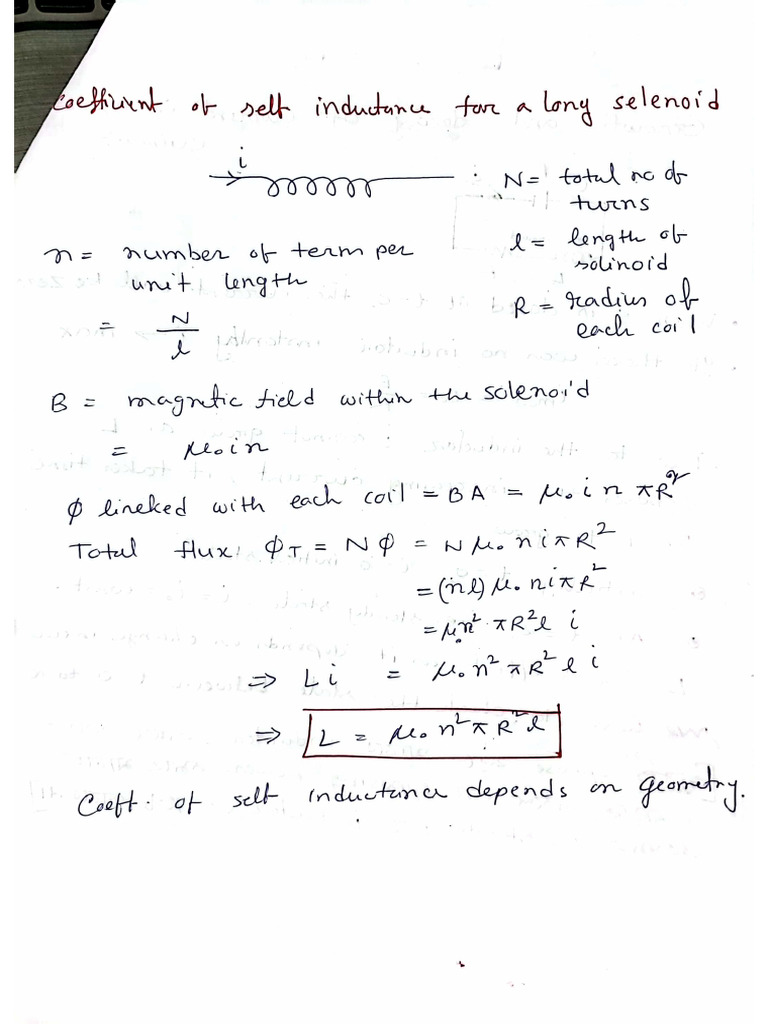 Coefficient of self inductance for a long selenoid
i
N = total no of
turns
n = number of term per
unit length
l = length of
solinoid
= N/l
R = radius of
each coil
B = magnetic field within the solenoid
= μ₀in
φ lineked with each coil = BA = μ₀ i n πR²
Total flux: φT = Nφ = Nμ₀ n i πR²
= (nl) μ₀ n i πR²
= μ₀n² πR²l i
⇒ Li = μ₀ n² πR² l i
⇒ L = μ₀ n² π R² l
Coeft. of self inductance depends on geometry.